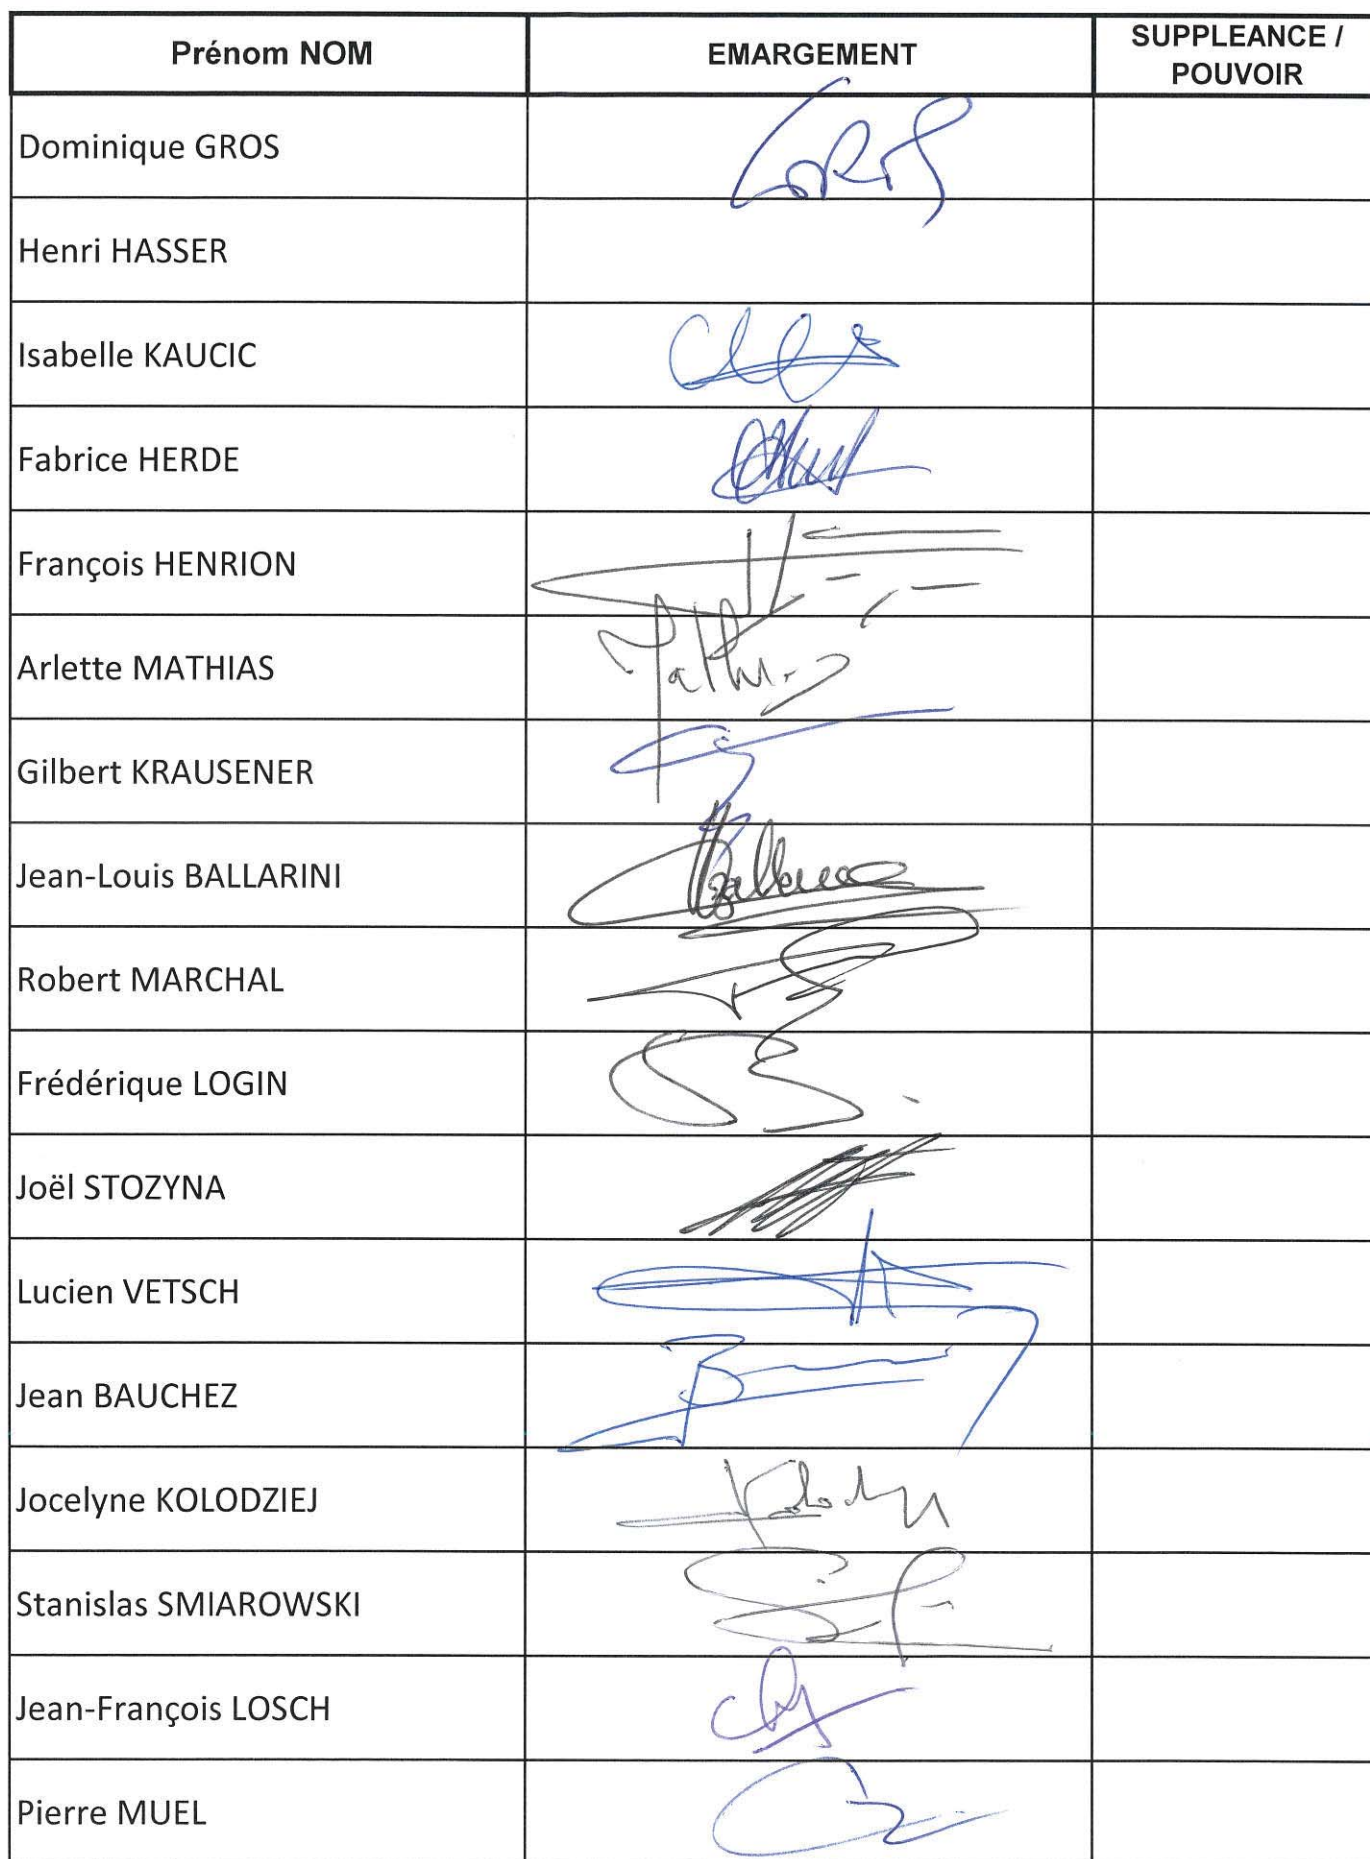 Prénom NOM
EMARGEMENT
SUPPLEANCE /
POUVOIR
Dominique GROS
Henri HASSER
Isabelle KAUCIC
Fabrice HERDE
François HENRION
Arlette MATHIAS
Gilbert KRAUSENER
Jean-Louis BALLARINI
Robert MARCHAL
Frédérique LOGIN
Joël STOZYNA
Lucien VETSCH
Jean BAUCHEZ
Jocelyne KOLODZIEJ
Stanislas SMIAROWSKI
Jean-François LOSCH
Pierre MUEL